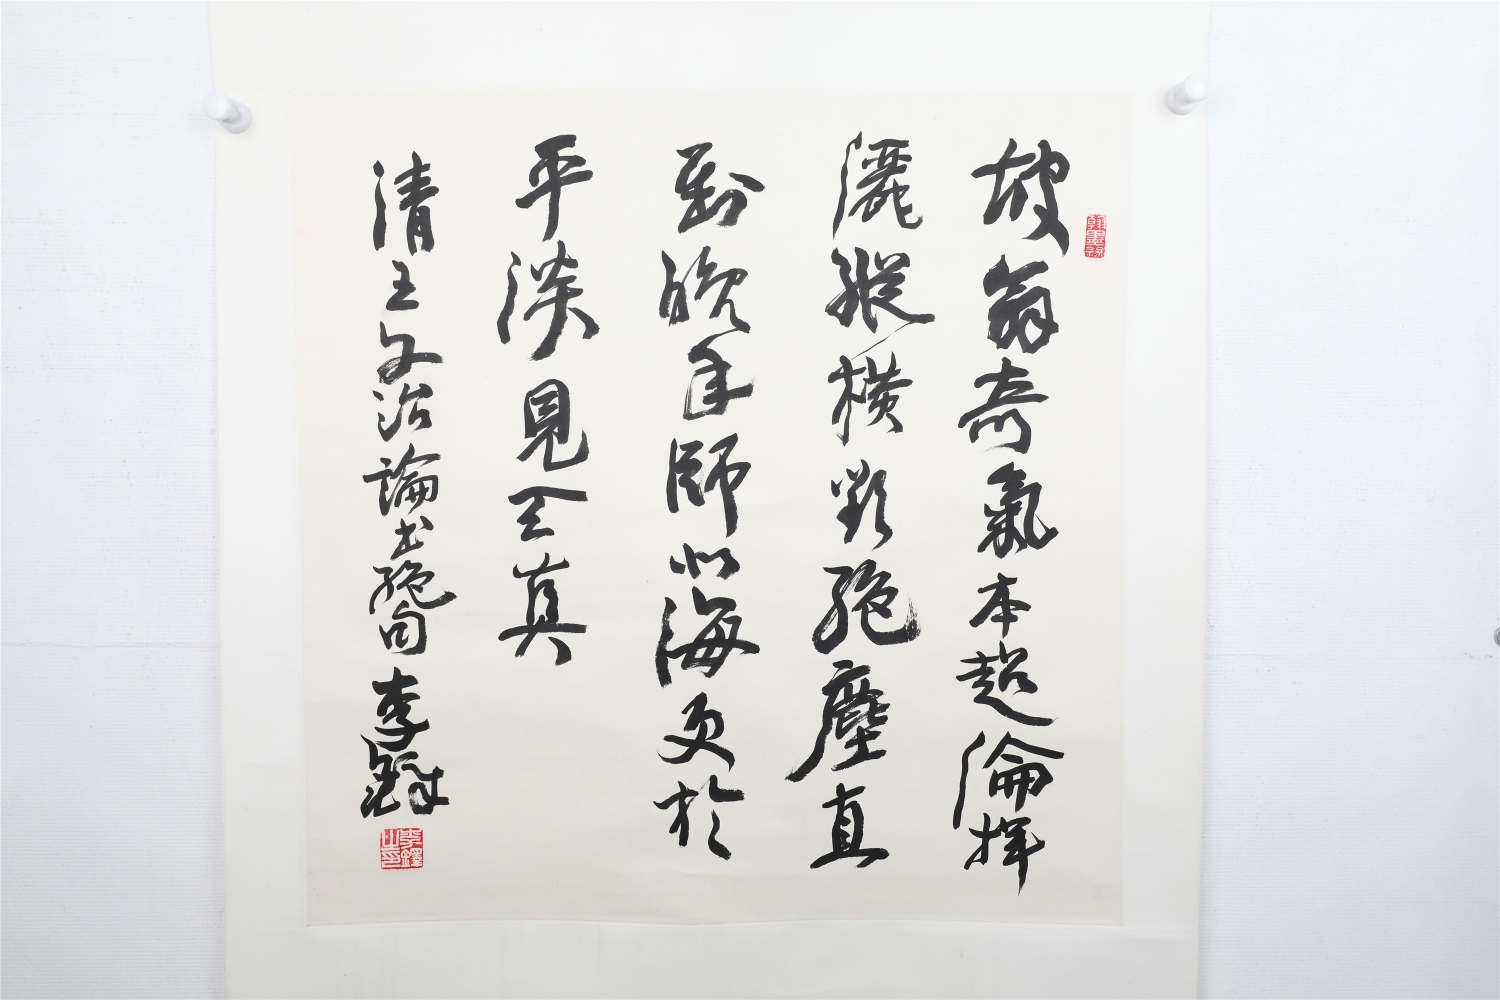 翰墨緣
坡翁奇氣本超倫揮
灑縱橫欲絕塵直
到晚年師北海更於
平淡見天真
清王文治論書絕句 李鐸
李鐸之印